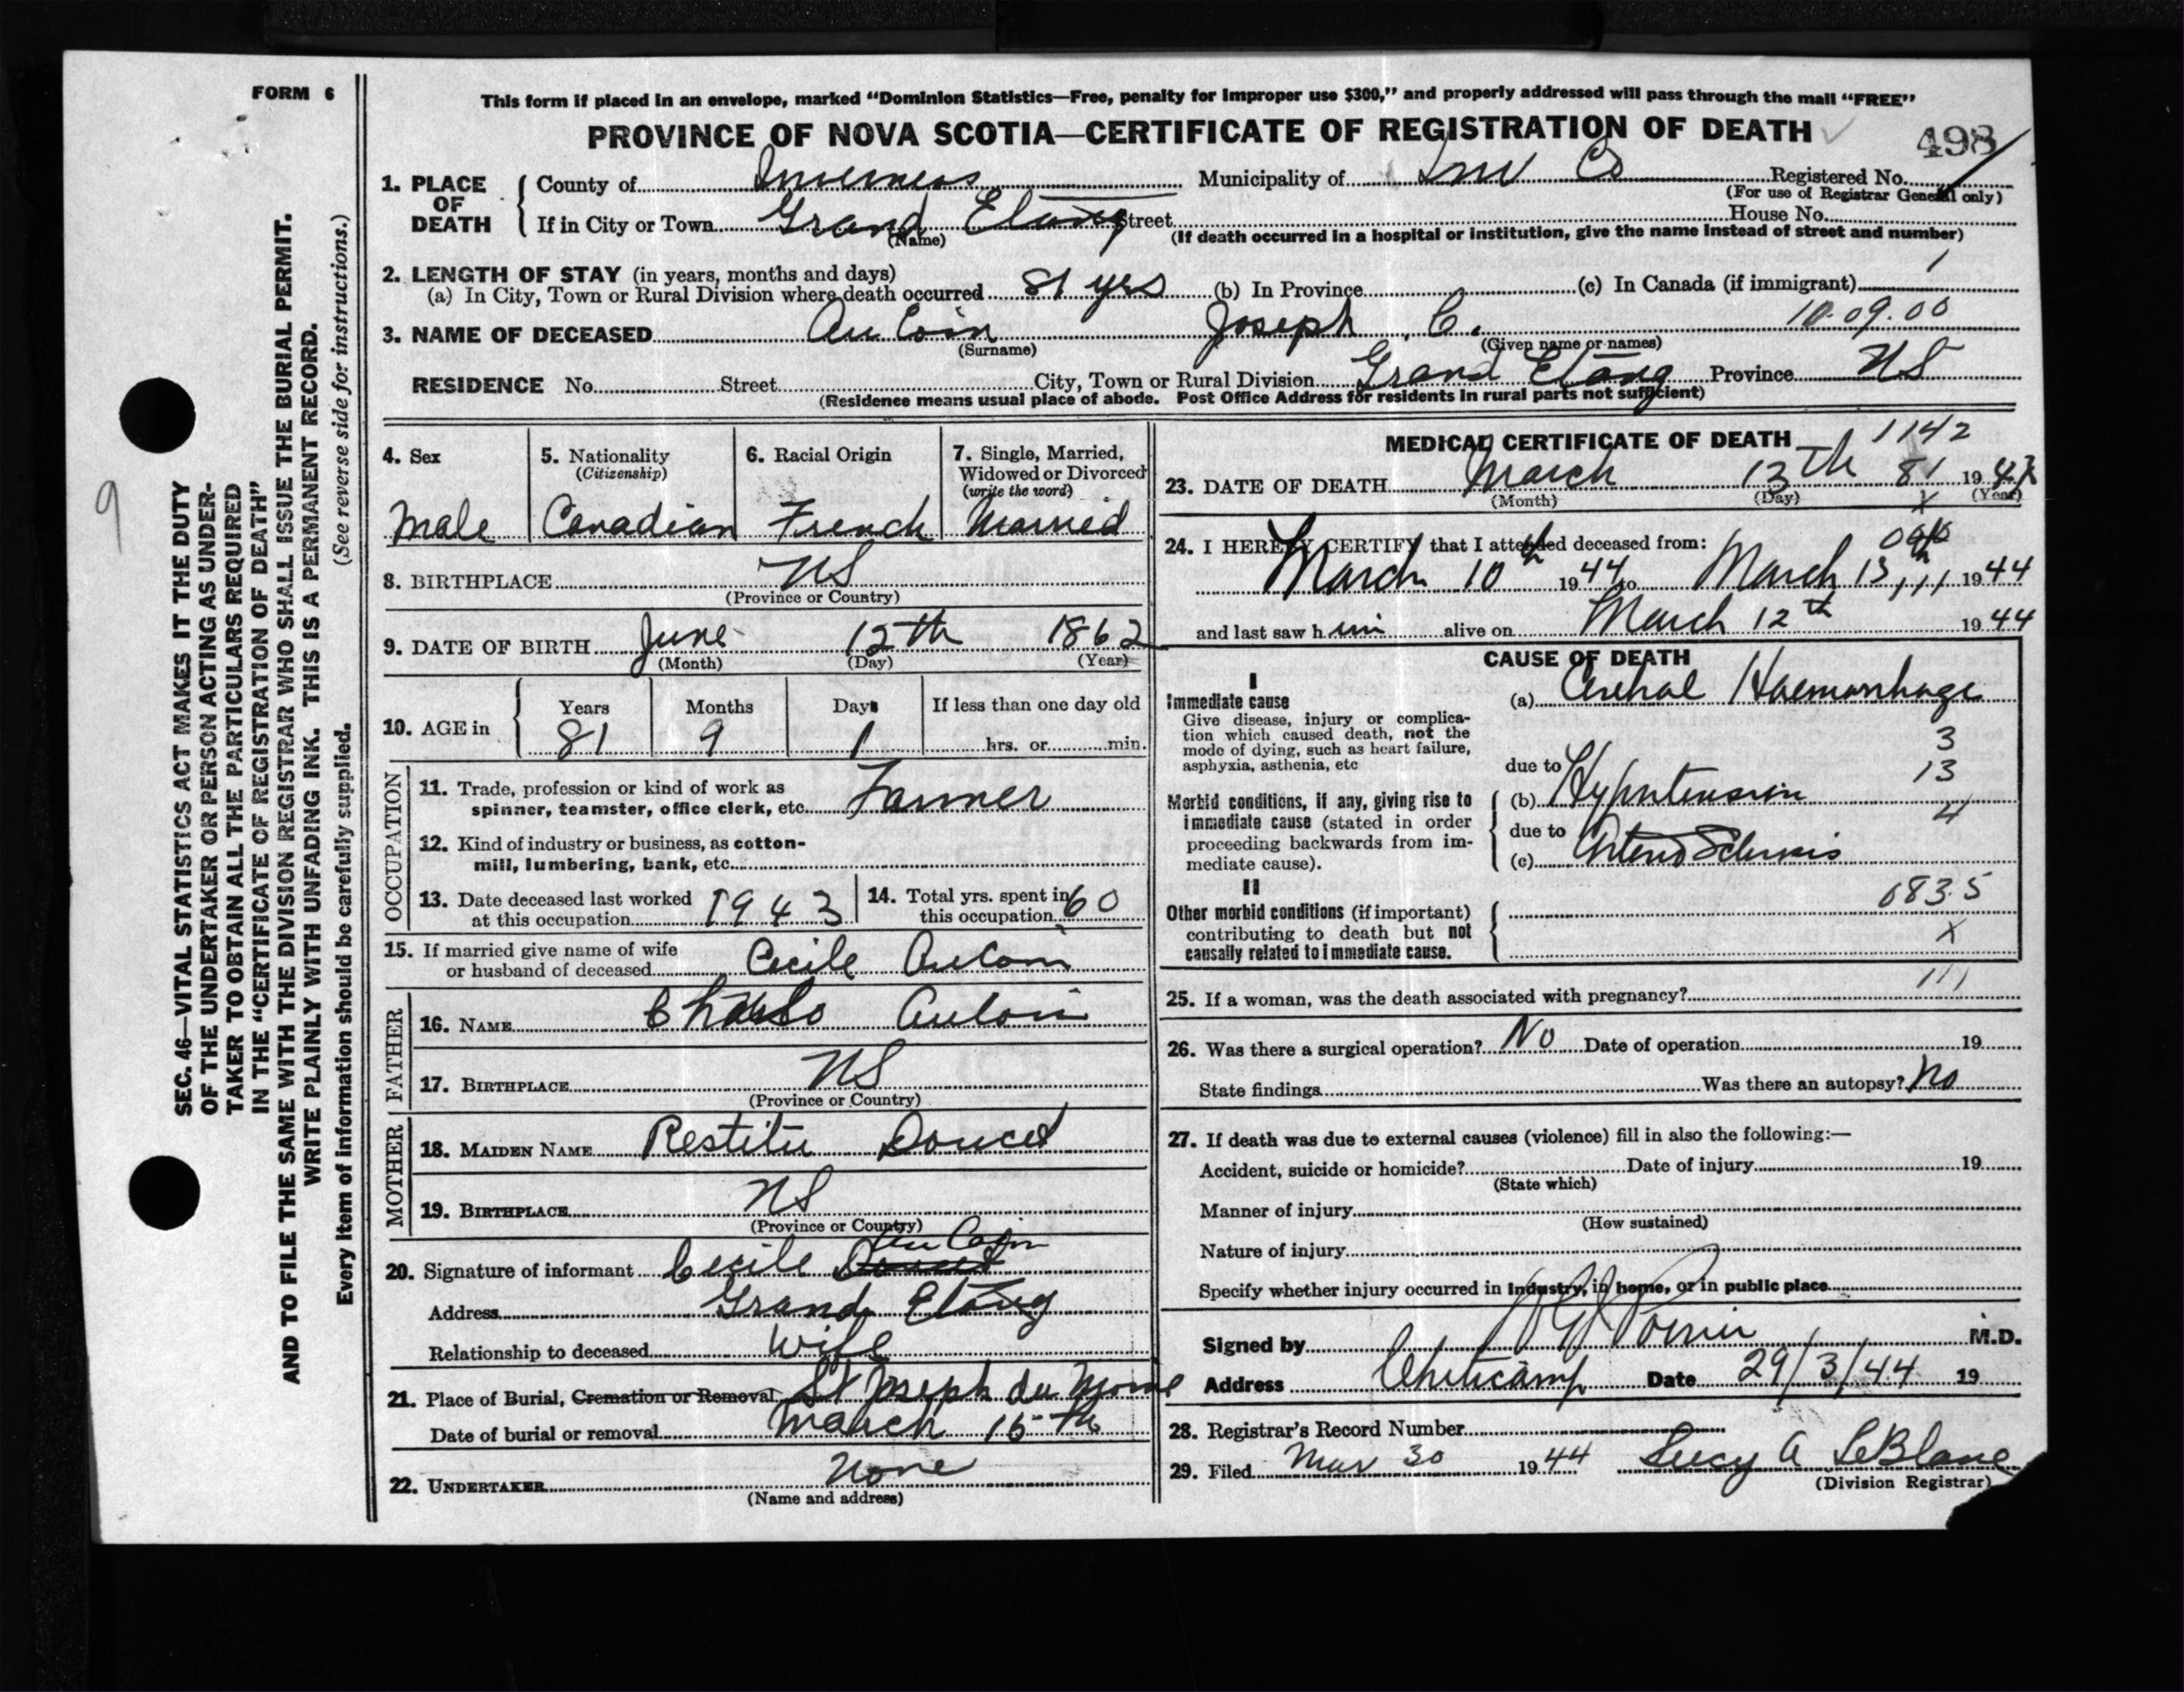 FORM 6
This form if placed in an envelope, marked "Dominion Statistics—Free, penalty for improper use $300," and properly addressed will pass through the mail "FREE"
PROVINCE OF NOVA SCOTIA—CERTIFICATE OF REGISTRATION OF DEATH
498
1. PLACE OF DEATH { County of Inverness Municipality of Inv Co Registered No.
(For use of Registrar General only)
If in City or Town Grand Etang Street House No.
(Name) (If death occurred in a hospital or institution, give the name instead of street and number)
2. LENGTH OF STAY (in years, months and days)
(a) In City, Town or Rural Division where death occurred 81 yrs (b) In Province (c) In Canada (if immigrant)
3. NAME OF DECEASED AuCoin Joseph C. 10.09.00
(Surname) (Given name or names)
RESIDENCE No. Street City, Town or Rural Division Grand Etang Province NS
(Residence means usual place of abode. Post Office Address for residents in rural parts not sufficient)
4. Sex
Male
5. Nationality
(Citizenship)
Canadian
6. Racial Origin
French
7. Single, Married, Widowed or Divorced
(write the word)
Married
8. BIRTHPLACE NS
(Province or Country)
9. DATE OF BIRTH June 12th 1862
(Month) (Day) (Year)
10. AGE in { Years Months Days If less than one day old
81 9 1 hrs. or min.
OCCUPATION
11. Trade, profession or kind of work as
spinner, teamster, office clerk, etc. Farmer
12. Kind of industry or business, as cotton-
mill, lumbering, bank, etc.
13. Date deceased last worked
at this occupation 1943
14. Total yrs. spent in
this occupation 60
15. If married give name of wife
or husband of deceased Cecile AuCoin
FATHER
16. NAME AuCoin
17. BIRTHPLACE NS
(Province or Country)
MOTHER
18. MAIDEN NAME Restitu Doucet
19. BIRTHPLACE NS
(Province or Country)
AuCoin
20. Signature of informant Cecile Doucet
Address Grand Etang
Relationship to deceased Wife
21. Place of Burial, Cremation or Removal St Joseph du Moine
Date of burial or removal March 15th
22. UNDERTAKER None
(Name and address)
MEDICAL CERTIFICATE OF DEATH
1142
23. DATE OF DEATH March 13th 81 19
(Month) (Day) (Year)
24. I HEREBY CERTIFY that I attended deceased from:
March 10th 1944 to March 13th 1944
and last saw him alive on March 12th 1944
CAUSE OF DEATH
I
Immediate cause
Give disease, injury or complica-
tion which caused death, not the
mode of dying, such as heart failure,
asphyxia, asthenia, etc
(a) Cerebral Haemorrhage
3
due to
13
Morbid conditions, if any, giving rise to
immediate cause (stated in order
proceeding backwards from im-
mediate cause).
(b) Hypertension
4
due to
(c) Arterio Sclerosis
II
Other morbid conditions (if important)
contributing to death but not
causally related to immediate cause.
083.5
X
25. If a woman, was the death associated with pregnancy?
26. Was there a surgical operation? No Date of operation 19
State findings Was there an autopsy? No
27. If death was due to external causes (violence) fill in also the following:—
Accident, suicide or homicide? Date of injury 19
(State which)
Manner of injury
(How sustained)
Nature of injury
Specify whether injury occurred in industry, in home, or in public place
Signed by Poirier M.D.
Address Cheticamp Date 29/3/44 19
28. Registrar's Record Number
29. Filed Mar 30 1944 Lucy A LeBlanc
(Division Registrar)
9
SEC. 46—VITAL STATISTICS ACT MAKES IT THE DUTY
OF THE UNDERTAKER OR PERSON ACTING AS UNDER-
TAKER TO OBTAIN ALL THE PARTICULARS REQUIRED
IN THE "CERTIFICATE OF REGISTRATION OF DEATH"
AND TO FILE THE SAME WITH THE DIVISION REGISTRAR WHO SHALL ISSUE THE BURIAL PERMIT.
WRITE PLAINLY WITH UNFADING INK. THIS IS A PERMANENT RECORD.
Every item of information should be carefully supplied. (See reverse side for instructions.)